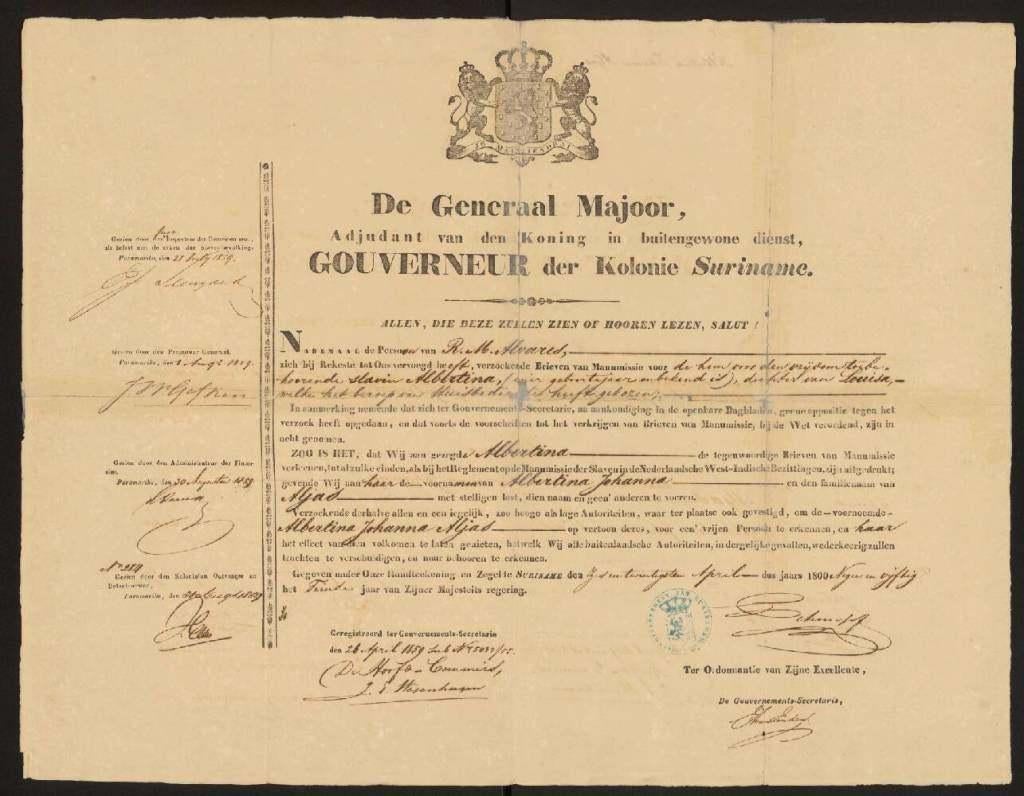 JE MAINTIENDRAI
De Generaal Majoor,
Adjudant van den Koning in buitengewone dienst,
GOUVERNEUR der Kolonie Suriname.
ALLEN, DIE DEZE ZULLEN ZIEN OF HOOREN LEZEN, SALUT!
NADEMAAL de Persoon van R. M. Alvares,
zich bij Rekeste tot Ons vervoegd heeft, verzoekende Brieven van Manumissie voor de hem in vrijdom toebe-
hoorende slavin Albertina, (wier geboortejaar onbekend is), dochter van Louisa,
welke het beroep van huisbediende heeft gekozen;
In aanmerking nemende dat zich ter Gouvernements-Secretarie, na aankondiging in de openbare Dagbladen, geene oppositie tegen het
verzoek heeft opgedaan, en dat voorts de voorschriften tot het verkrijgen van Brieven van Manumissie, bij de Wet verordend, zijn in
acht genomen.
ZOO IS HET, dat Wij aan gezegde Albertina de tegenwoordige Brieven van Manumissie
verleenen, tot al zulke einden, als bij het Reglement op de Manumissie der Slaven in de Nederlandsche West-Indische Bezittingen, zijn uitgedrukt;
gevende Wij aan haar de voornamen van Albertina Johanna en den familienaam van
Aljas met stelligen last, dien naam en geen' anderen te voeren.
Verzoekende derhalve allen en een iegelijk, zoo hooge als lage Autoriteiten, waar ter plaatse ook gevestigd, om de voornoemde
Albertina Johanna Aljas op vertoon dezes, voor een' vrijen Persoon te erkennen, en haar
het effect van dien volkomen te laten genieten, hetwelk Wij alle buitenlandsche Autoriteiten, in dergelijke gevallen, wederkeerig zullen
trachten te verschuldigen, en naar behooren te erkennen.
Gegeven onder Onze Handteekening en Zegel te SURINAME den Zes en twintigsten April des jaars 1800 Negen en vijftig
het Tiende jaar van Zijner Majesteits regering.
Geregistreerd ter Gouvernements-Secretarie
den 26 April 1859
Ter Ordonnantie van Zijne Excellentie,
De Gouvernements-Secretaris,
Gezien door den Inspecteur der Domeinen enz.,
als belast met de zaken der slavenbevolking.
Paramaribo, den 21 July 1859.
Gezien door den Procureur Generaal.
Paramaribo, den 1 Augs 1859.
J W Gefken
Gezien door den Administrateur der Finan-
cien.
Paramaribo, den 20 Augustus 1859
No. 284
Gezien door den Kolonialen Ontvanger en
Betaalmeester,
Paramaribo, den